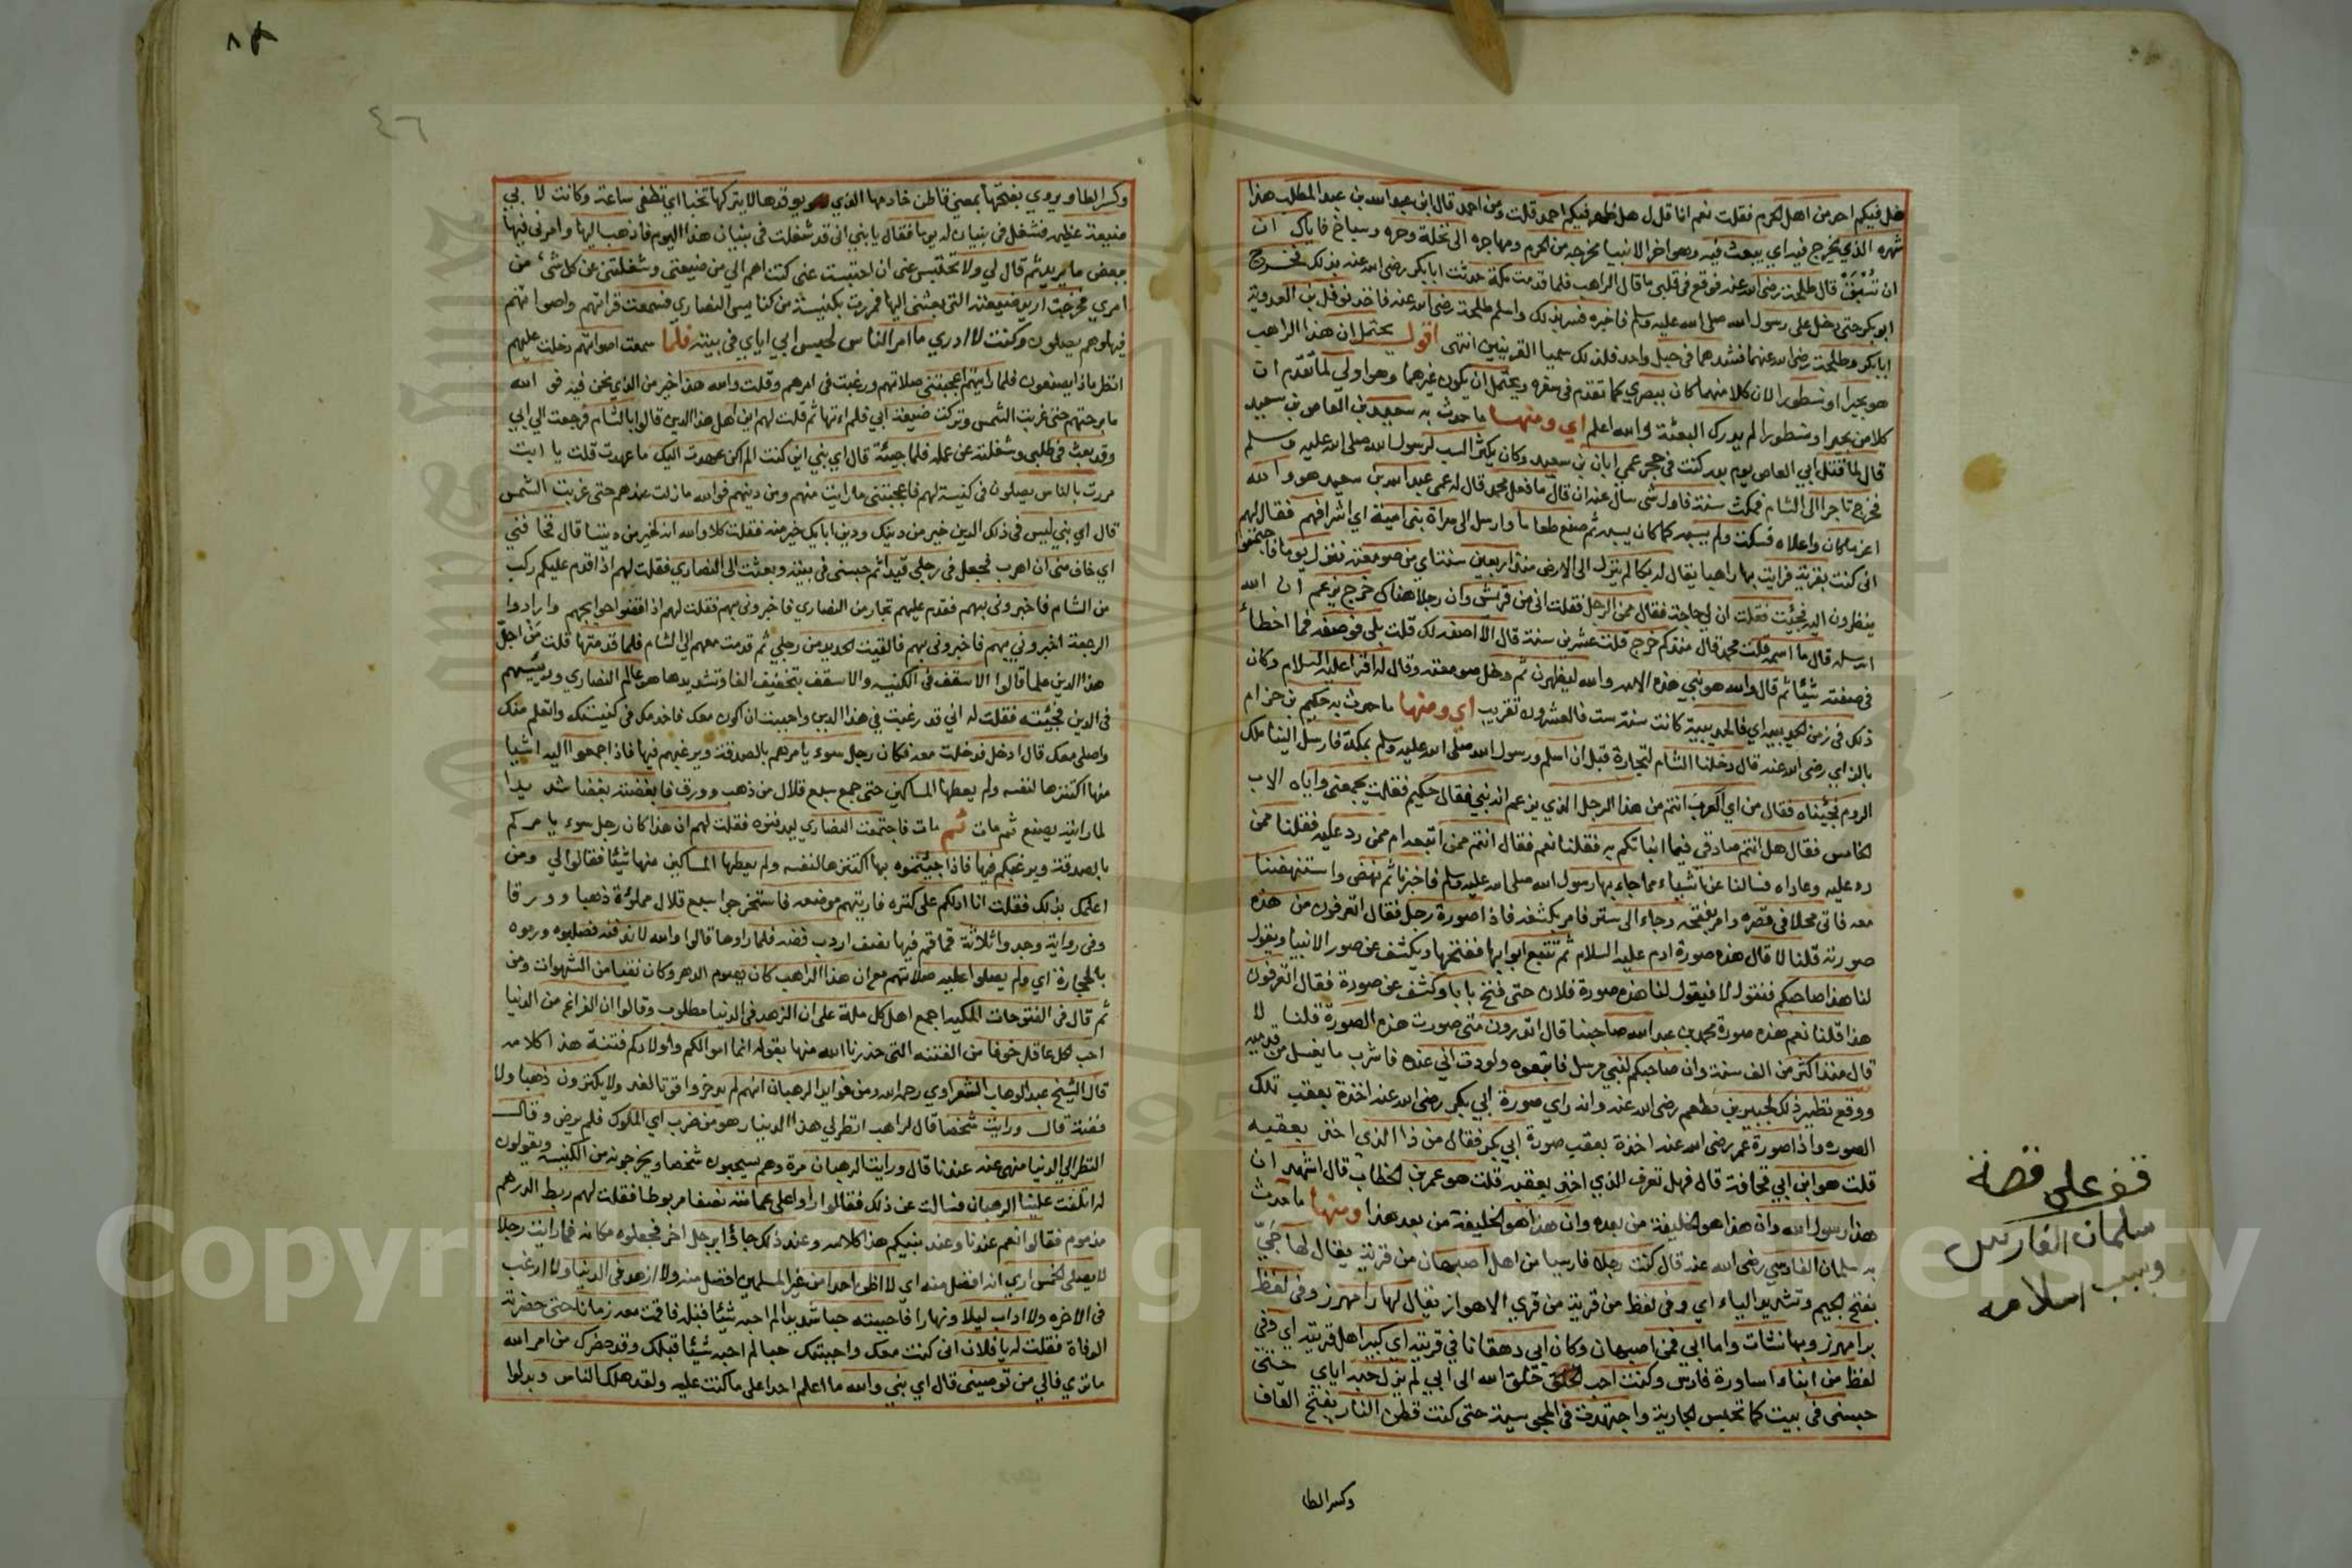 هل فيكم احد من اهل الحرم فقلت نعم انا قال لي هل ظهر فيكم احمد قلت ومن احمد قال ابن عبد الله بن عبد المطلب هذا
شهره الذي يخرج فيه اي يبعث فيه وهو اخر الانبيا مخرجه من الحرم ومهاجره الى نخلة وحره وسباخ فاياك ان
ان تُسْبَقَ قال طلحة رضي الله عنه فوقع في قلبي ما قال الراهب فلما قدمت مكة حدثت ابا بكر رضي الله عنه بذلك فخرج
ابو بكر حتى دخل على رسول الله صلى الله عليه وسلم فاخبره فسر بذلك واسلم طلحة رضي الله عنه فاخذ نوفل بن العدوية
ابا بكر وطلحة رضي الله عنهما فشدهما في حبل واحد فلذلك سميا القرينين انتهى اقول يحتمل ان هذا الراهب
هو بحيرا او نسطورا لان كلا منهما كان ببصرى كما تقدم في سفره ويحتمل ان يكون غيرهما وهو اولى لما تقدم ان
كلا من بحيرا ونسطورا لم يدرك البعثة والله اعلم اي ومنها ما حدث به سعيد بن العاص بن سعيد
قال لما قتل ابي العاص يوم بدر كنت في حجر عمي ابان بن سعيد وكان يكثر السب لرسول الله صلى الله عليه وسلم
فخرج تاجرا الى الشام فمكث سنة فاول شي سال عنه ان قال ما فعل محمد قال له عمي عبد الله بن سعيد هو والله
اعز ما كان واعلاه فسكت ولم يسبه كما كان يسبه ثم صنع طعاما وارسل الى سراة بني امية اي اشرافهم فقال لهم
اني كنت بقرية فرايت بها راهبا يقال له بكا لم ينزل الى الارض منذ اربعين سنة اي من صومعته فنزل يوما فاجتمعوا
ينظرون اليه فجئت فقلت ان لي حاجة فقال ممن الرجل فقلت اني من قريش وان رجلا هناك خرج يزعم ان الله
ارسله قال ما اسمه قلت محمد قال منذ كم خرج قلت عشرين سنة قال الا اصفه لك قلت بلى فوصفه فما اخطأ
في صفته شيئا ثم قال والله هو نبي هذه الامة والله ليظهرن ثم دخل صومعته وقال لي اقرا عليه السلام وكان
ذلك في زمن الحديبية اي فالحديبية كانت سنة ست فالعشرون تقريب اي ومنها ما حدث به حكيم بن حزام
بالزاي رضي الله عنه قال دخلنا الشام لتجارة قبل ان اسلم ورسول الله صلى الله عليه وسلم بمكة فارسل الينا ملك
الروم فجئناه فقال من اي العرب انتم من هذا الرجل الذي يزعم انه نبي فقال حكيم فقلت يجمعني واياه الاب
الخامس فقال هل انتم صادقي فيما انباتكم به فقلنا نعم فقال انتم ممن اتبعه ام ممن رد عليه فقلنا ممن
رد عليه وعاداه فسالنا عن اشياء مما جاء بها رسول الله صلى الله عليه وسلم فاخبرناه ثم نهض واستنهضنا
معه فاتى محلا في قصره وامر بفتحه وجاء الى ستر فامر بكشفه فاذا صورة رجل فقال اتعرفون من هذه
صورته قلنا لا قال هذه صورة ادم عليه السلام ثم تتبع ابوابها ففتحها ويكشف عن صور الانبيا ويقول
لنا هذا صاحبكم فنقول لا فيقول لنا هذه صورة فلان حتى فتح بابا وكشف عن صورة فقال اتعرفون
هذا قلنا نعم هذه صورة محمد بن عبد الله صاحبنا قال اتدرون متى صورت هذه الصورة قلنا لا
قال منذ اكثر من الف سنة وان صاحبكم لنبي مرسل فاتبعوه ولوددت اني عنده فاشرب ما يغسل من قدميه
ووقع نظير ذلك لجبير بن مطعم رضي الله عنه وانه راى صورة ابي بكر رضي الله عنه اخذة بعقب تلك
الصوره واذا صورة عمر رضي الله عنه اخذة بعقب صورة ابي بكر فقال من ذا الذي اخذ بعقبه
قلت هو ابن ابي قحافة قال فهل تعرف الذي اخذ بعقبه قلت هو عمر بن الخطاب قال اشهد ان
هذا رسول الله وان هذا هو الخليفة من بعده وان هذا هو الخليفة من بعد هذا ومنها ما حدث
به سلمان الفارسي رضي الله عنه قال كنت رجلا فارسيا من اهل اصبهان من قرية يقال لها جَيّ
بفتح الجيم وتشديد الياء اي وفي لفظ من قرية من قرى الاهواز يقال لها رامهرمز وفي لفظ
برامهرمز وبها نشات واما ابي فمن اصبهان وكان ابي دهقانا في قريته اي كبير اهل قريته اي وفي
لفظ من ابناء اساورة فارس وكنت احب الخلق خلق الله الى ابي لم يزل حبه اياي حتى
حبسني في بيت كما تحبس الجارية واجتهدت في المجوسية حتى كنت قطن النار بفتح القاف
وكسر الطا
قف على قصة
سلمان الفارسي
وسبب اسلامه
٤٦
وكسر الطا ويروى بفتحها بمعنى قاطن خادمها الذي يوقدها لا يتركها تخبا اي تطفى ساعة وكانت لابي
ضيعة عظيمة فشغل في بنيان له يوما فقال يا بني اني قد شغلت في بنيان هذا اليوم فاذهب اليها وامرني فيها
ببعض ما يريد ثم قال لي ولا تحتبس عني ان احتبست عني كنت اهم الي من ضيعتي وشغلتني عن كل شيء من
امري فخرجت اريد ضيعته التي بعثني اليها فمررت بكنيسة من كنايس النصارى فسمعت قراتهم واصواتهم
فيها وهم يصلون وكنت لا ادري ما امر الناس لحبس ابي اياي في بيته فلما سمعت اصواتهم دخلت عليهم
انظر ماذا يصنعون فلما رايتهم اعجبتني صلاتهم ورغبت في امرهم وقلت والله هذا خير من الذي نحن فيه فوالله
ما برحتهم حتى غربت الشمس وتركت ضيعة ابي فلم اتها ثم قلت لهم اين اهل هذا الدين قالوا بالشام فرجعت الى ابي
وقد بعث في طلبي وشغلته عن عمله فلما جيئة قال اي بني اين كنت الم اكن عهدت اليك ما عهدت قلت يا ابت
مررت بالناس يصلون في كنيسة لهم فاعجبتني ما رايت منهم ومن دينهم فوالله ما زلت عندهم حتى غربت الشمس
قال اي بني ليس في ذلك الدين خير من دينك ودين ابايك خير منه فقلت كلا والله انه لخير من ديننا قال فخافني
اي خاف مني ان اهرب فجعل في رجلي قيدا ثم حبسني في بيته وبعثت الى النصارى فقلت لهم اذا قدم عليكم ركب
من الشام فاخبروني بهم فقدم عليهم تجار من النصارى فاخبروني بهم فقلت لهم اذا قضوا حوايجهم وارادوا
الرجعة اخبروني بهم فاخبروني بهم فالقيت الحديد من رجلي ثم قدمت معهم الى الشام فلما قدمتها قلت مَنْ اجلّ
هذا الدين علما قالوا الاسقف في الكنيسه والاسقف بتخفيف الفا وتشديدها هو عالم النصارى ورئيسهم
في الدين فجئته فقلت له اني قد رغبت في هذا الدين واحببت ان اكون معك فاخدمك في كنيستك واتعلم منك
واصلي معك قال ادخل فدخلت معه فكان رجل سوء يامرهم بالصدقة ويرغبهم فيها فاذا جمعوا اليه اشيا
منها اكتنزها لنفسه ولم يعطها المساكين حتى جمع سبع قلال من ذهب وورق فابغضته بغضا شديدا
لما رايته يصنع ثم مات ثم مات فاجتمعت النصارى ليدفنوه فقلت لهم ان هذا كان رجل سوء يامركم
بالصدقة ويرغبكم فيها فاذا جيئتموه بها اكتنزها لنفسه ولم يعطها المساكين منها شيئا فقالوا لي ومن
اعلمك بذلك فقلت انا ادلكم على كنزه فاريتهم موضعه فاستخرجوا سبع قلال مملوئة ذهبا وورقا
وفي رواية وجدوا ثلاثة قماقم فيها نصف اردب فضه فلما راوها قالوا والله لا ندفنه فصلبوه ورموه
بالحجارة اي ولم يصلوا عليه صلاتهم مع ان هذا الراهب كان يصوم الدهر وكان نقيا من الشهوات ومن
ثم قال في الفتوحات المكيه اجمع اهل كل ملة على ان الزهد في الدنيا مطلوب وقالوا ان الفراغ من الدنيا
احب لكل عاقل خوفا من الفتنه التي حذرنا الله منها بقوله انما اموالكم واولادكم فتنة هذا كلامه
قال الشيخ عبد الوهاب الشعراوي رحمه الله ومن فوايد الرهبان انهم لم يدخروا قوتا لغد ولا يكنزون ذهبا ولا
فضة قال ورايت شخصا قال لراهب انظر لي هذا الدينار هو من ضرب اي الملوك فلم يرض وقال
النظر الى الدنيا منهي عنه عندنا قال ورايت الرهبان مرة وهم يسحبون شخصا ويخرجونه من الكنيسه ويقولون
له اتلفت علينا الرهبان فسالت عن ذلك فقالوا راوا على عمامته نصفا مربوطا فقلت لهم ربط الدرهم
مذموم فقالوا نعم عندنا وعند نبيكم هذا كلامه وعند ذلك جاؤا برجل اخر فجعلوه مكانه فما رايت رجلا
لا يصلي الخمس ارى انه افضل منه اي لا اظن احدا من غير المسلمين افضل منه ولا ازهد في الدنيا ولا ارغب
في الاخره ولا اداب ليلا ونهارا فاحببته حبا شديدا لم احبه شيئا قبله فاقمت معه زمانا حتى حضرته
الوفاة فقلت له يا فلان اني كنت معك واحببتك حبا لم احبه شيئا قبلك وقد حضرك من امر الله
ما ترى فالى من توصيني قال اي بني والله ما اعلم احدا على ما كنت عليه ولقد هلك الناس وبدلوا
Copyright © King Saud University